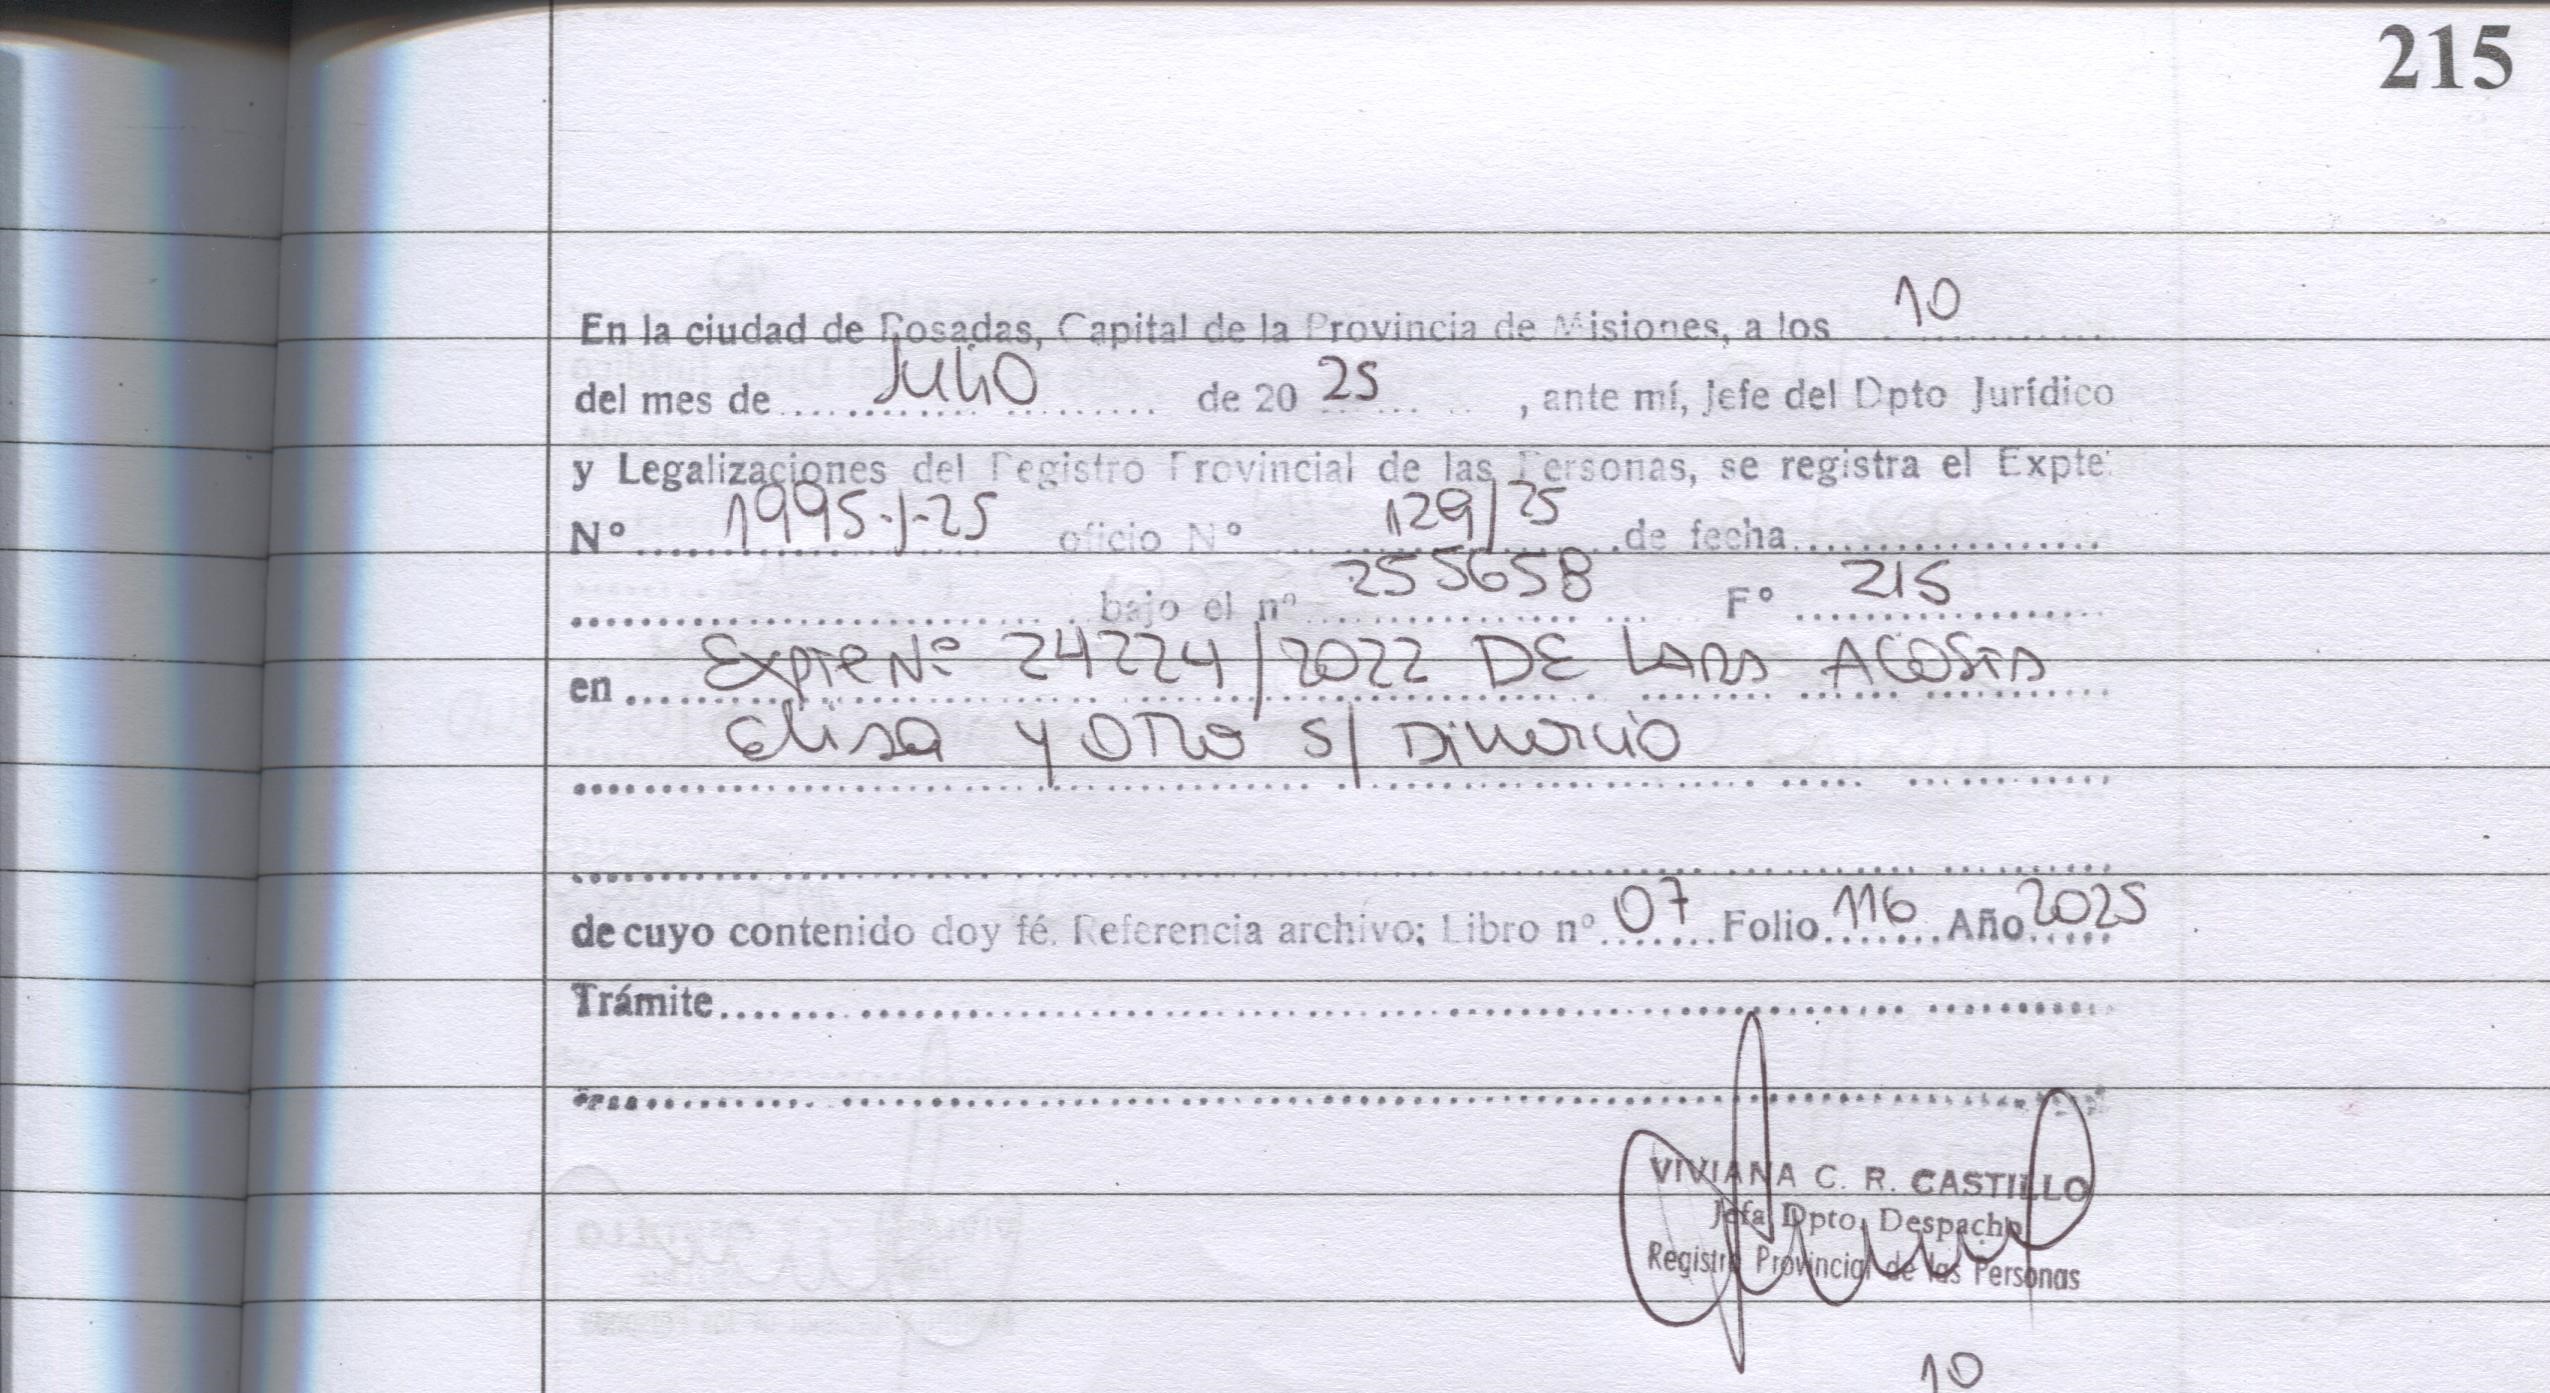 215
En la ciudad de Posadas, Capital de la Provincia de Misiones, a los 10
del mes de Julio de 20 25, ante mí, Jefe del Dpto Jurídico
y Legalizaciones del Registro Provincial de las Personas, se registra el Expte.
Nº 1995-J-25 oficio Nº 129/25 de fecha
bajo el nº 255658 Fº 215
en Expte Nº 24224/2022 DE LARA ACOSTA
Elisa y OTRO S/ Divorcio
de cuyo contenido doy fé. Referencia archivo: Libro nº 07 Folio 116 Año 2025
Trámite
VIVIANA C. R. CASTILLO
Jefa Dpto. Despacho
Registro Provincial de las Personas
10